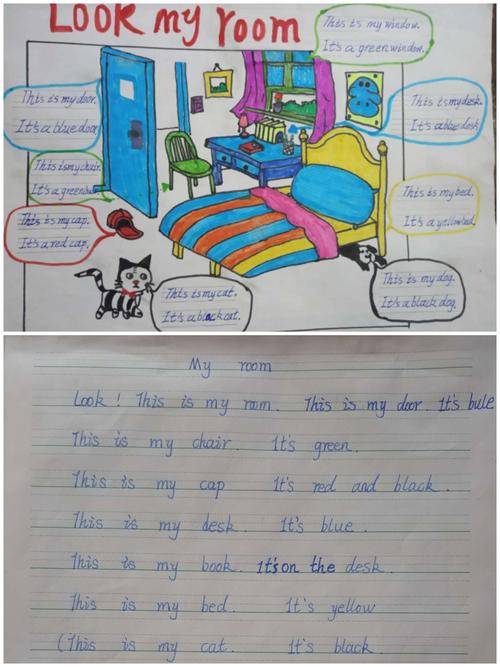 LOOK my room
This is my window.
It's a green window.
This is my door.
It's a blue door
This is my desk.
It's a blue desk
This is my chair.
It's a green
This is my bed.
It's a yellow bed.
This is my cap.
It's a red cap,
This is my cat.
It's a black cat.
This is my dog.
It's a black dog.
My room
Look! This is my room. This is my door. It's bule
This is my chair. It's green.
This is my cap It's red and black.
This is my desk. It's blue.
This is my book. It's on the desk.
This is my bed. It's yellow
(This is my cat. It's black.